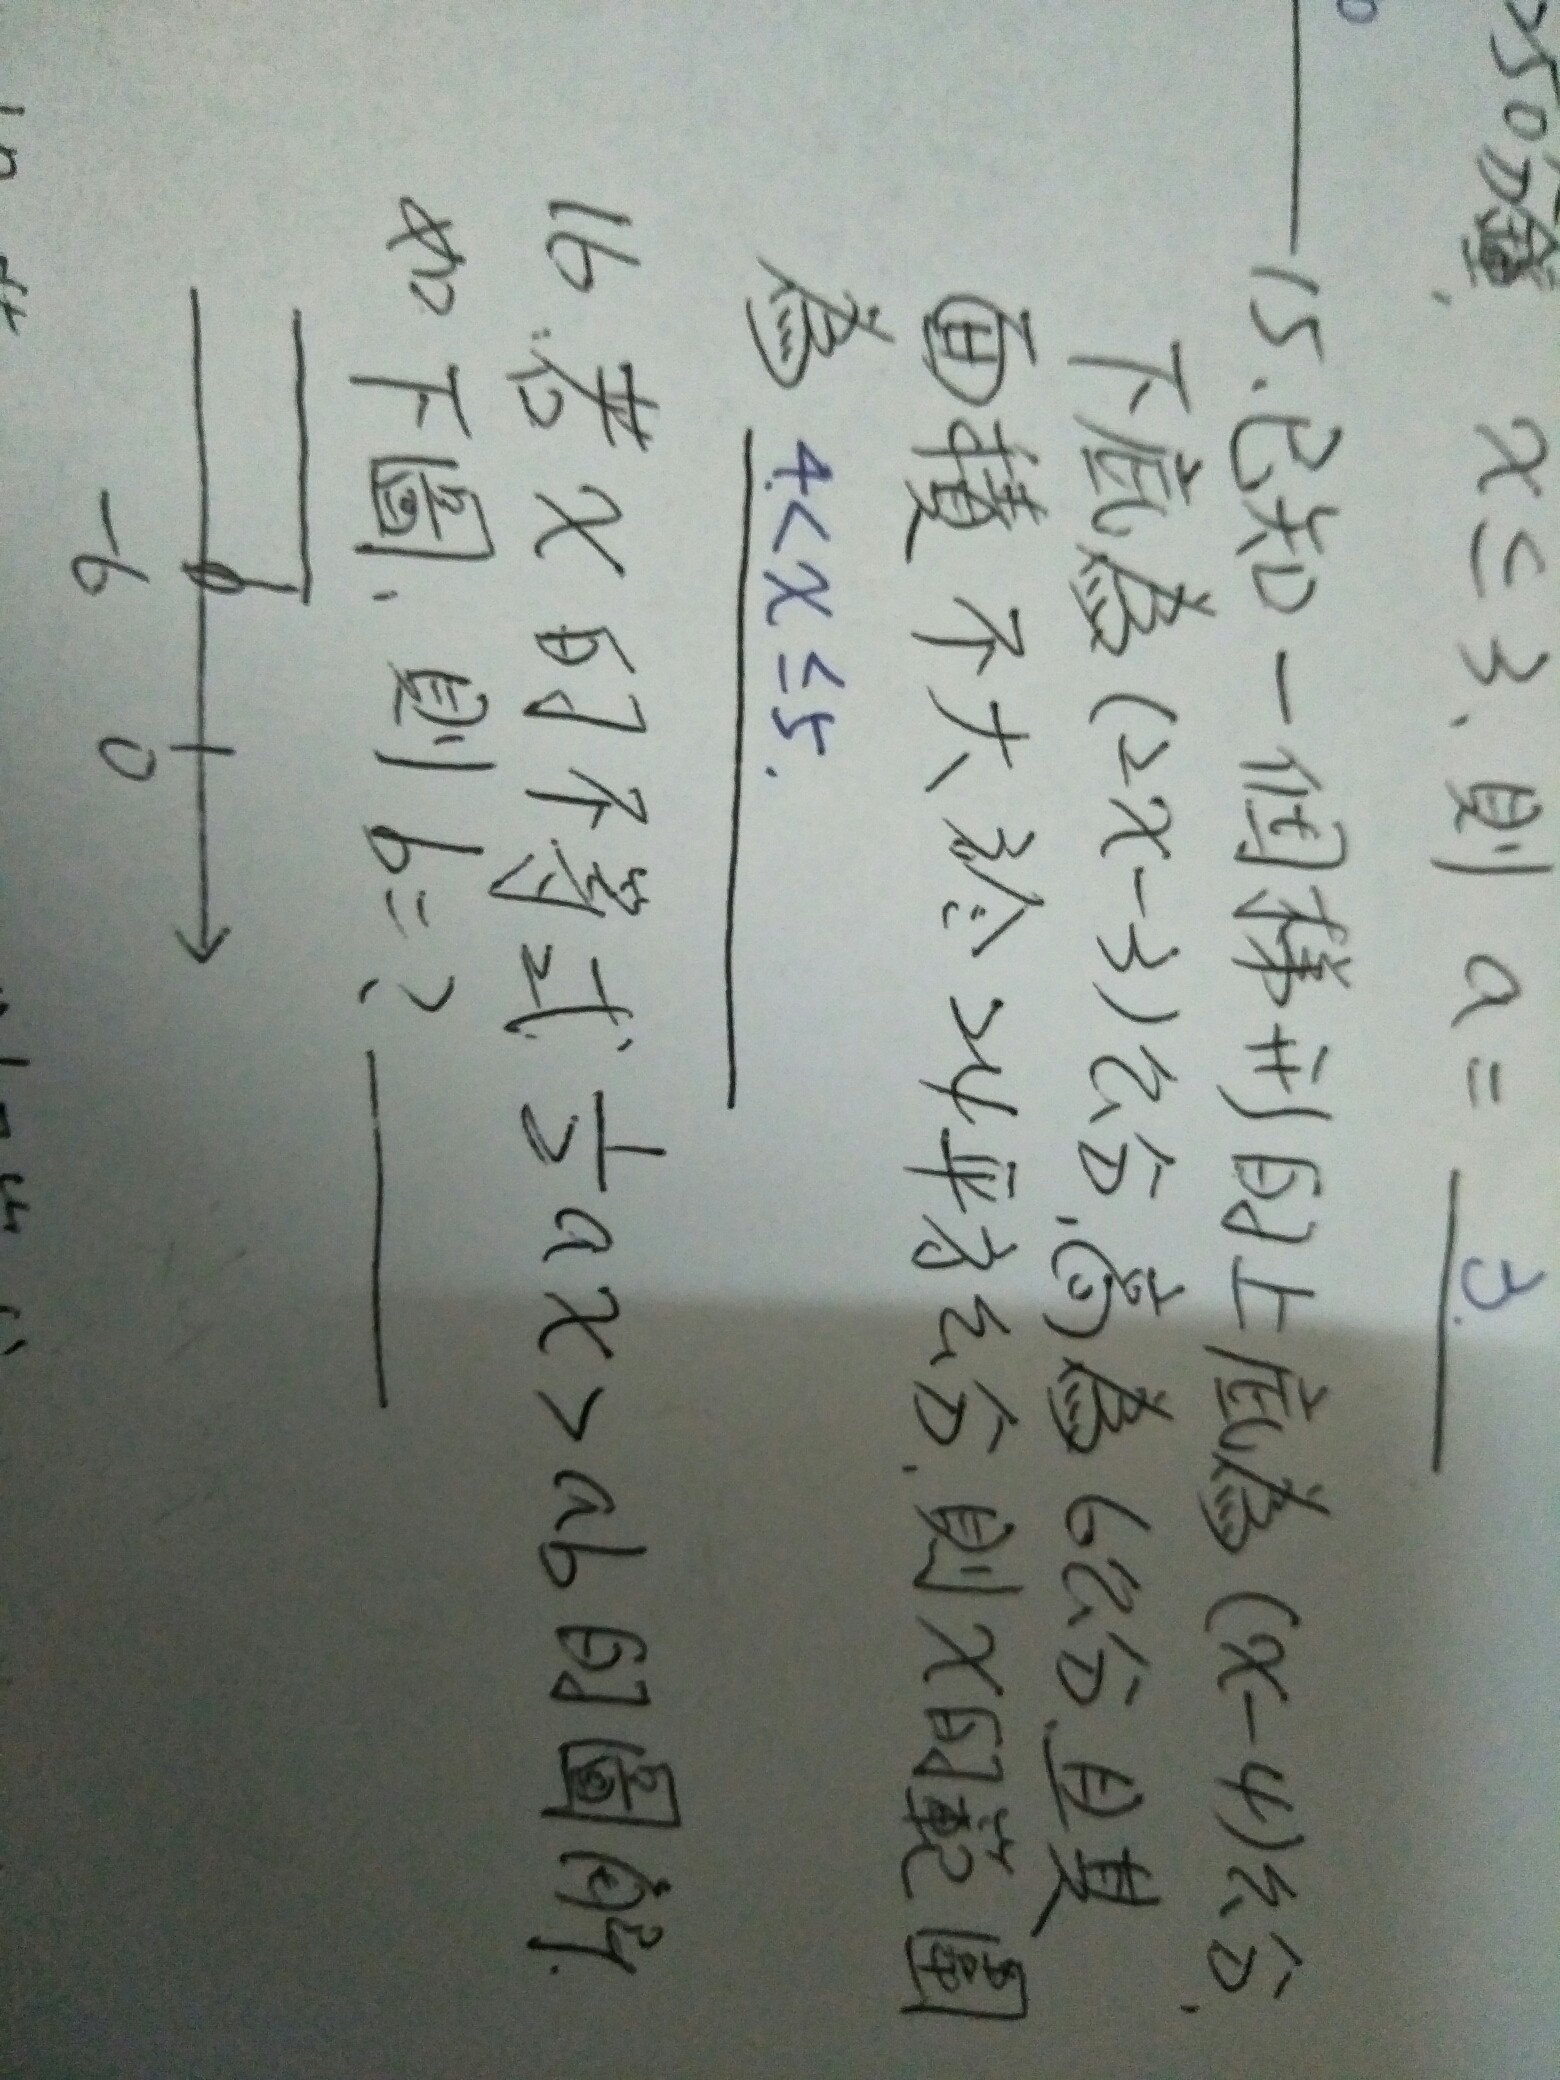 >50
x≤3,則 a= 3.
15.已知一個梯形的上底為(x-4)公分,
下底為(2x-3)公分,高為6公分,且其
面積不大於24平方公分,則x的範圍
為 4<x≤5.
16.若x的不等式:1/2ax>ab的圖解,
如下圖,則b=?
-6 0